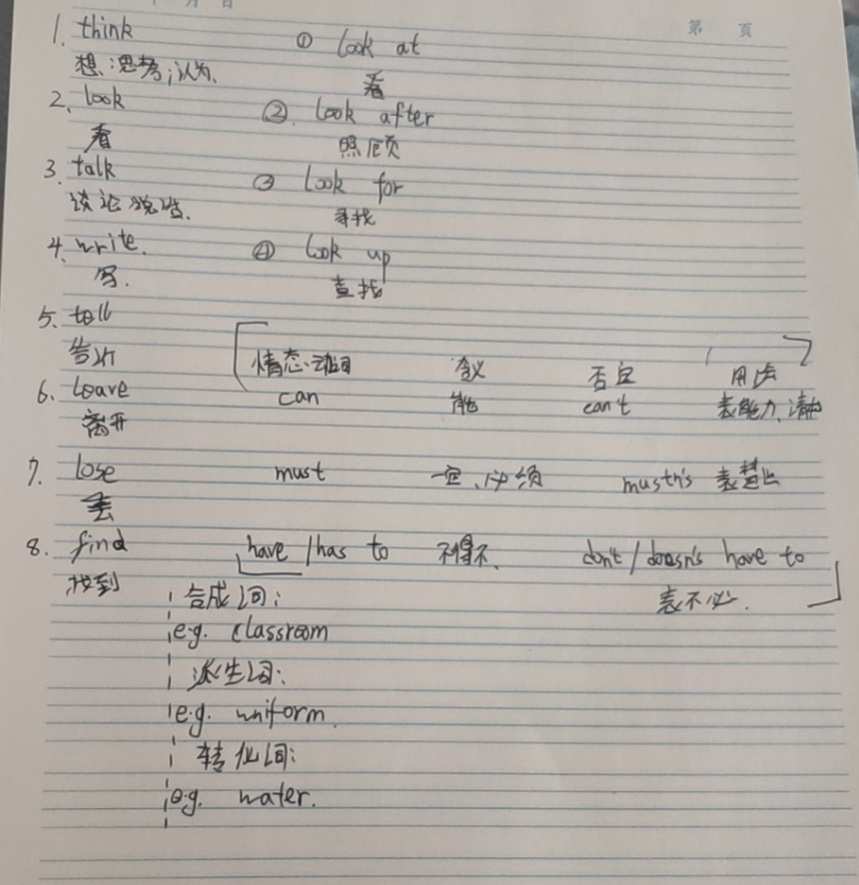 月 日
第 頁
1. think
想;思考;认为.
2. look
看
3. talk
谈论 说话.
4. write.
写.
5. tell
告诉
6. leave
离开
7. lose
丢
8. find
找到
① look at
看
②. look after
照顾
③ look for
寻找
④ look up
查找
情态动词 含义 否定 用法
can 能 can't 表能力、请求
must 一定、必须 mustn's 表禁止
have / has to 不得不. don't / doesn's have to
表不必.
合成词:
e.g. classroom
派生词:
e.g. uniform.
转化词:
e.g. water.